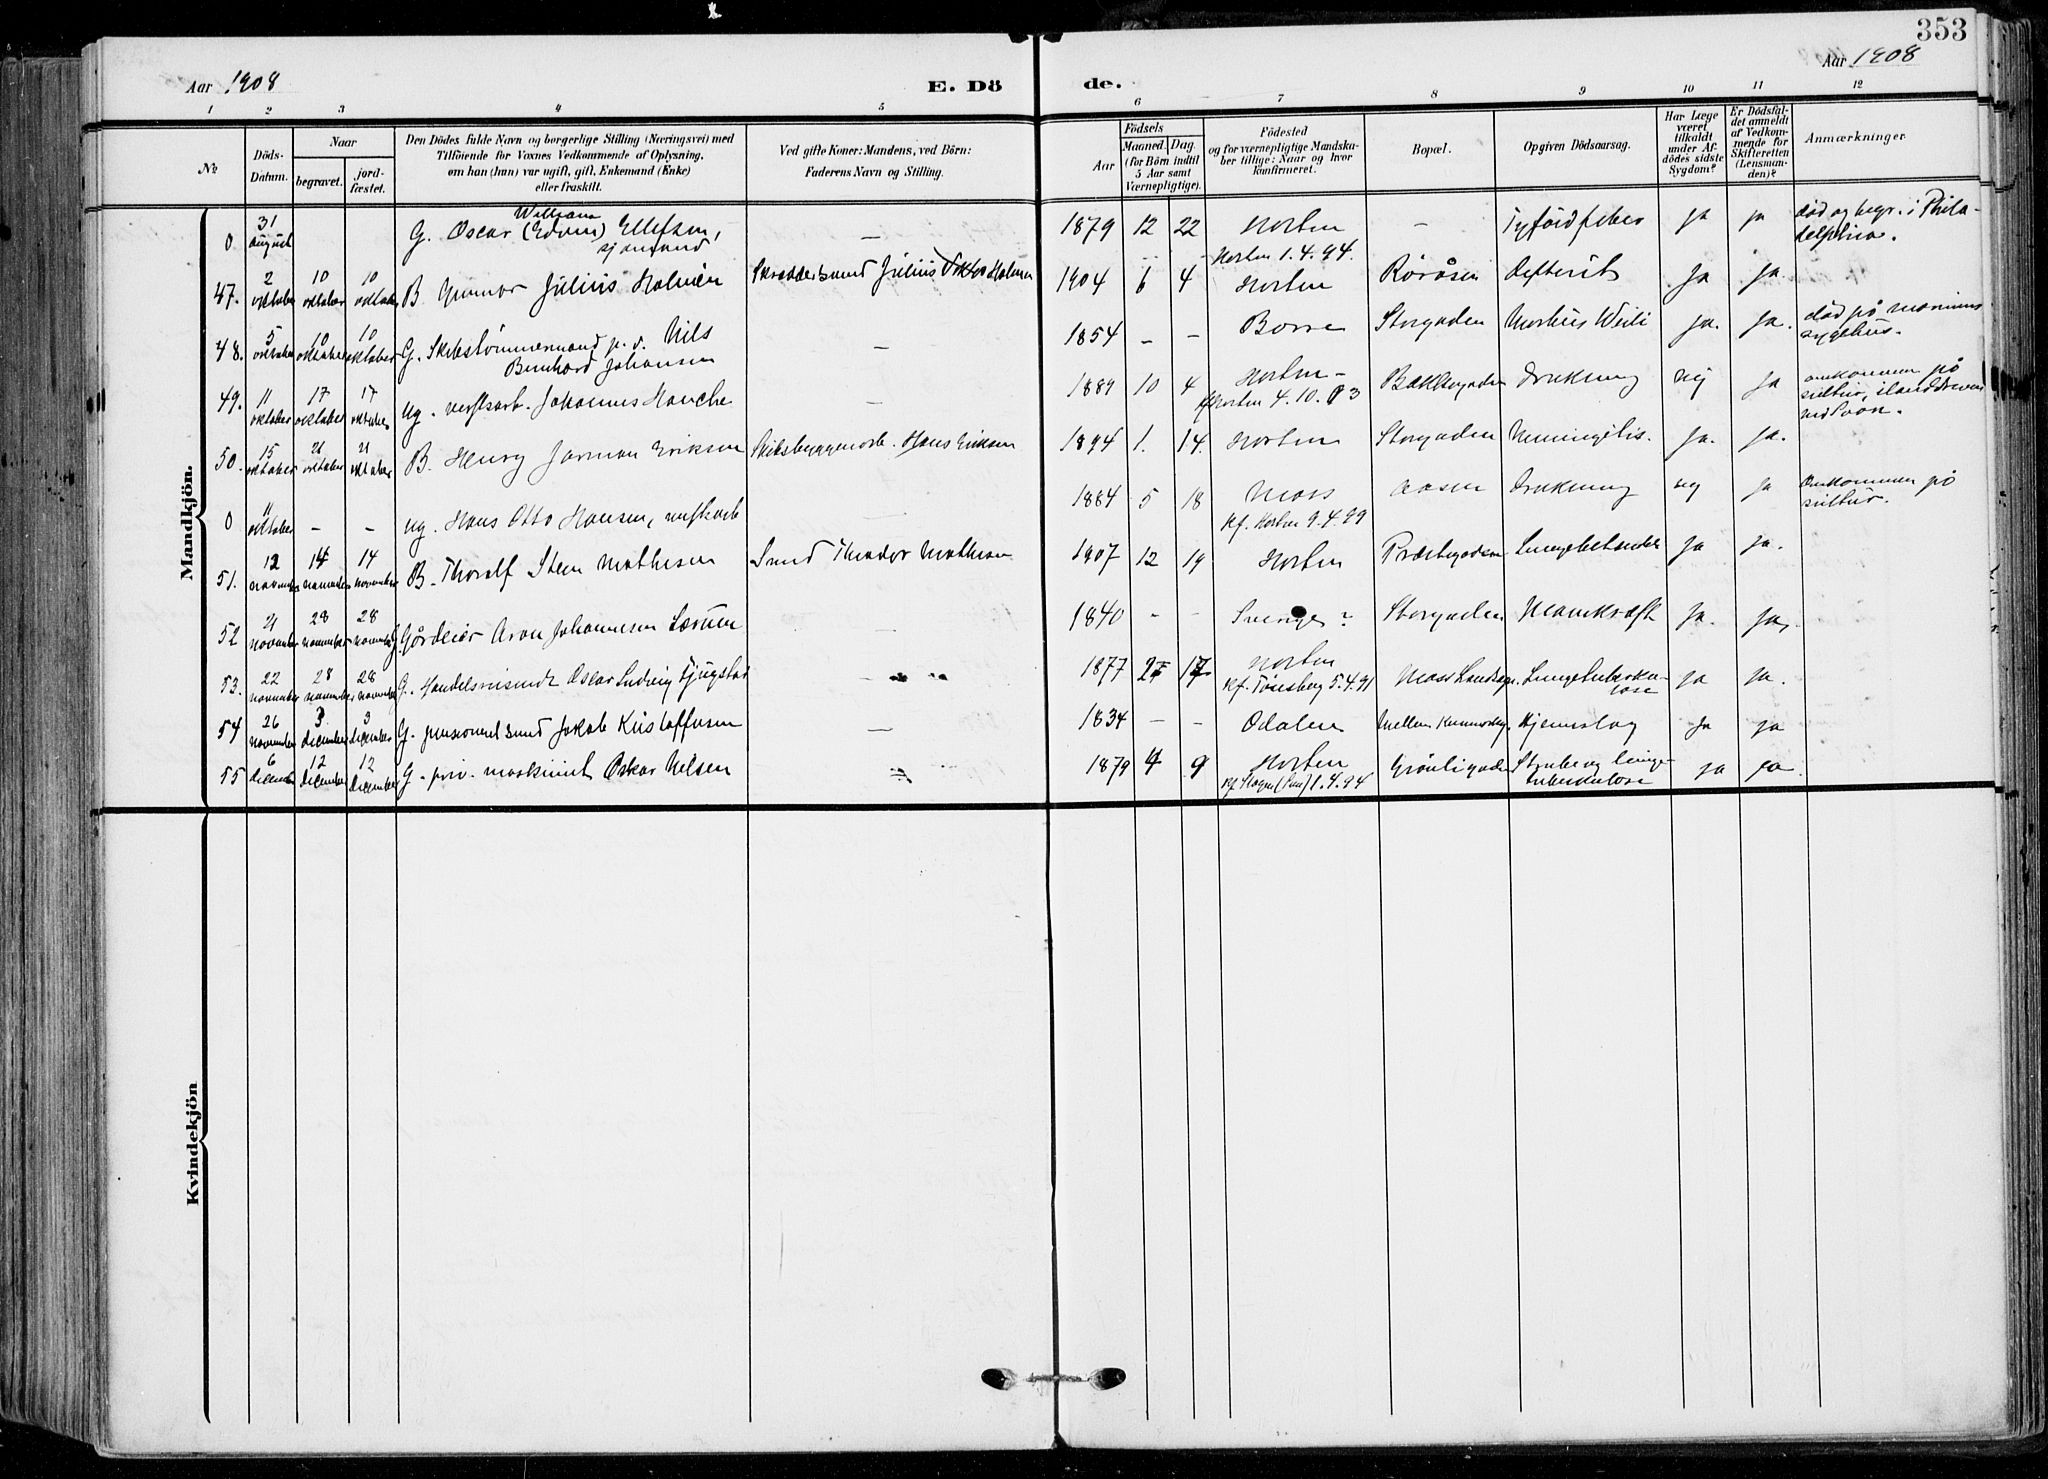 353
Aar 1908
E. Dö
de.
Aar 1908
1 2 3 4 5 6 7 8 9 10 11 12
№
Döds-
Datum.
Naar
begravet.
jord-
fæstet.
Den Dödes fulde Navn og borgerlige Stilling (Næringsvei) med
Tilföiende for Voxnes Vedkommende af Oplysning,
om han (hun) var ugift, gift, Enkemand (Enke)
eller fraskilt.
Ved gifte Koner: Mandens, ved Börn:
Faderens Navn og Stilling.
Födsels
Aar
Maaned.
Dag.
(for Börn indtil
5 Aar samt
Værnepligtige).
Födested
og for værnepligtige Mandska-
ber tillige: Naar og hvor
konfirmeret.
Bopæl.
Opgiven Dödsaarsag.
Har Læge
været
tilkaldt
under Af-
dödes sidste
Sygdom?
Er Dödsfal-
det anmeldt
af Vedkom-
mende for
Skifteretten
(Lensman-
den)?
Anmærkninger.
Mandkjön.
0 31 august G. Oscar (Edvin) William Ellefsen, sjømand — 1879 12 22 Horten Horten 1.4.94. — Tyfoidfeber ja ja død og begr. i Phila-
delphia.
47. 2 oktober 10 oktober 10 oktober B Gunnar Julius Holmen Skræddersvend Julius Holmen 1904 6 4 Horten Røråsen Defterit ja ja.
48. 5 oktober 10 oktober 10 oktober G. Skibstømmermand p. v. Nils
Bernhard Johansen — 1854 — — Borre Storgaden Morbus Weili ja. ja. død på marinens
sygehus.
49. 11 oktober 17 oktober 17 oktober ug. verftsarb. Johannes Hanche — 1889 10 4 Horten —
Horten 4.10.03 drukning nej ja omkommen på
seiltur, ilanddreven
50. 15 oktober 21 oktober 21 oktober B. Henry Jarman Eriksen Skibsbyggerarb. Hans Eriksen 1894 1. 14. Horten Storgaden Meningitis. ja. ja.
0 11 oktober — — ug. Hans Otto Hansen, verftsarb — 1884 5 18 Moss
kf. Horten 9.4.99 Aasen Drukning nej ja Omkommen på
seiltur.
51. 12 november 14 november 14 november B. Thoralf Steen Mathisen Smed Theodor Mathisen 1907 12 19 Horten Præstegaden Lungebetændelse ja ja.
52 21 november 28 november 28 november G. Gårdeier Aron Johannesen — 1840 — — Sverige? Storgaden Mavekræft ja. ja.
53. 22 november 28 november 28 november G. Handelsreisende Oscar Ludvig Fjugstad 1877 Horten
kf. Tønsberg 5.4.91 Lungetuberku-
lose ja ja.
54 26 november 3 december 3 december G. pensioneret smed Jakob Kristoffersen — 1834 — — Odalen Hjerneslag ja ja
55 6 december 12 december 12 december G. priv. maskinist Oskar Nilsen 1879 4 9 Horten
1.4.94 Grønligaden Strube og lunge-
tuberkulose ja ja.
Kvindekjön